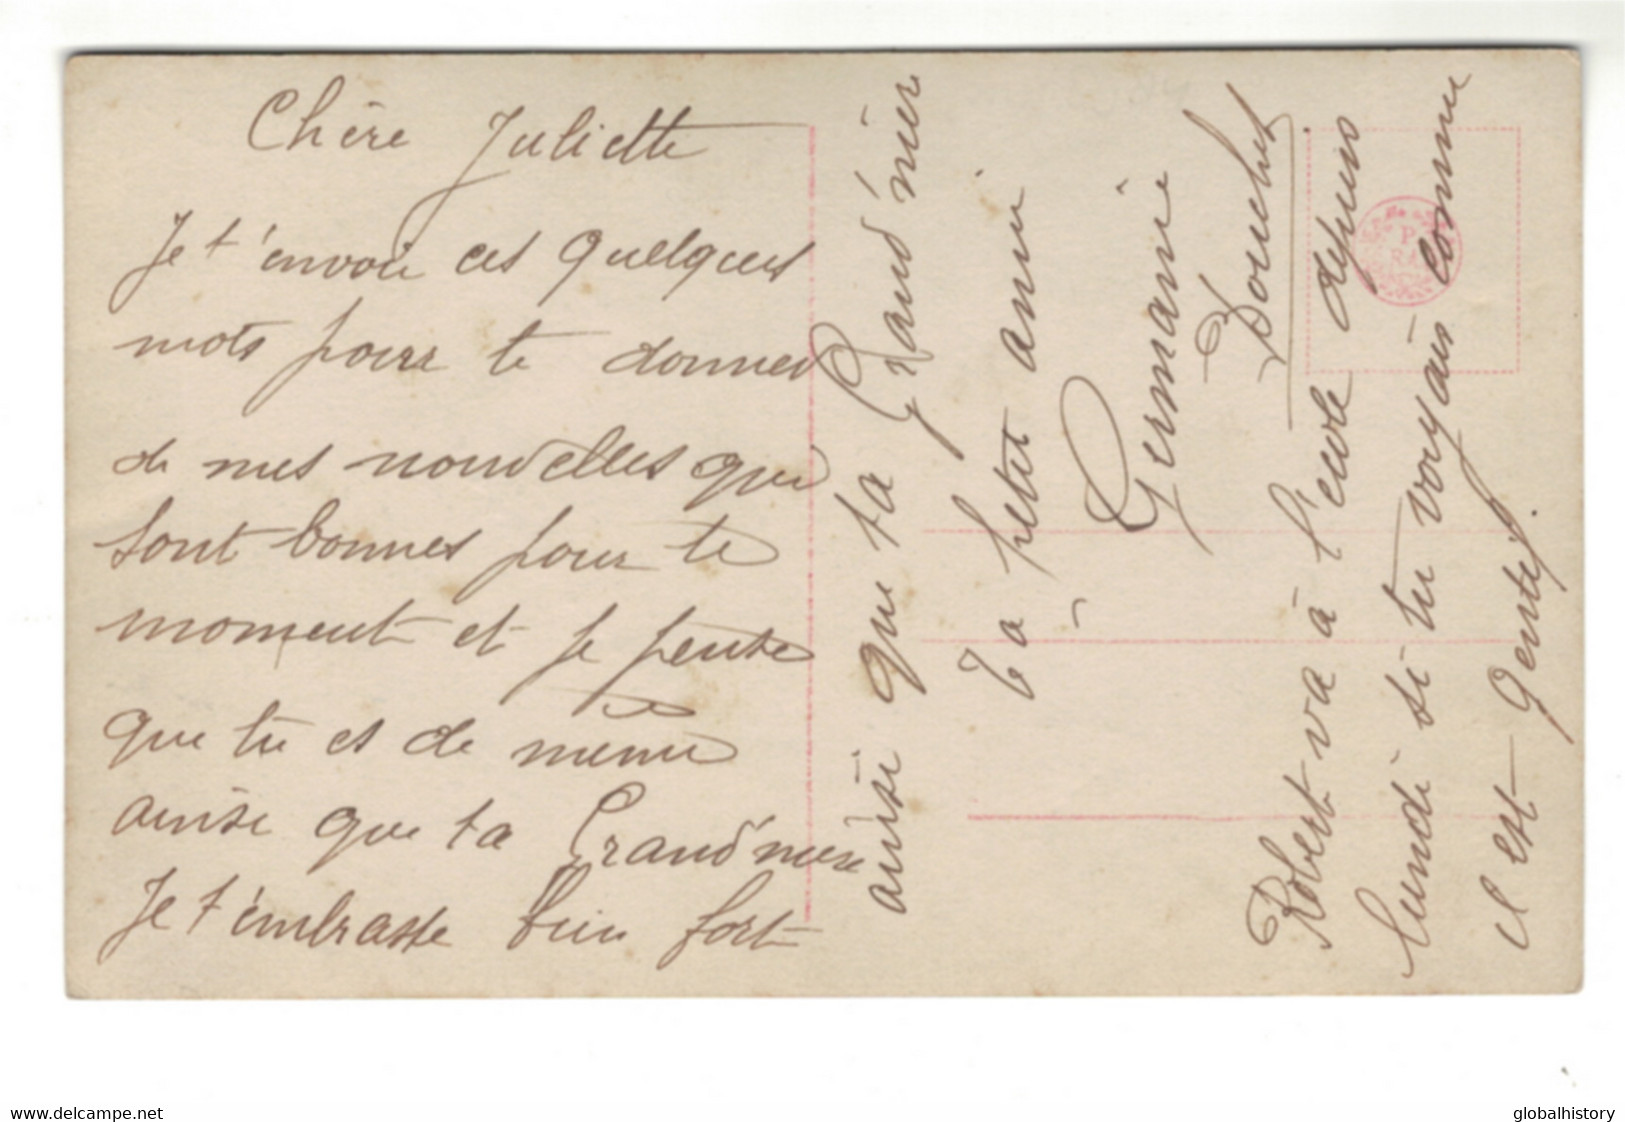 Chère Juliette
Je t'envoie ces quelques
mots pour te donner
de mes nouvelles qui
sont bonnes pour te
moment et je pense
que tu es de même
ainsi que ta Grand'mère
Je t'embrasse bien fort
ainsi que ta Grand'mère
Ta petite amie
Germaine
Douchet
Robert va à l'école depuis
lundi si tu voyais comme
il est gentil.
P
www.delcampe.net
globalhistory